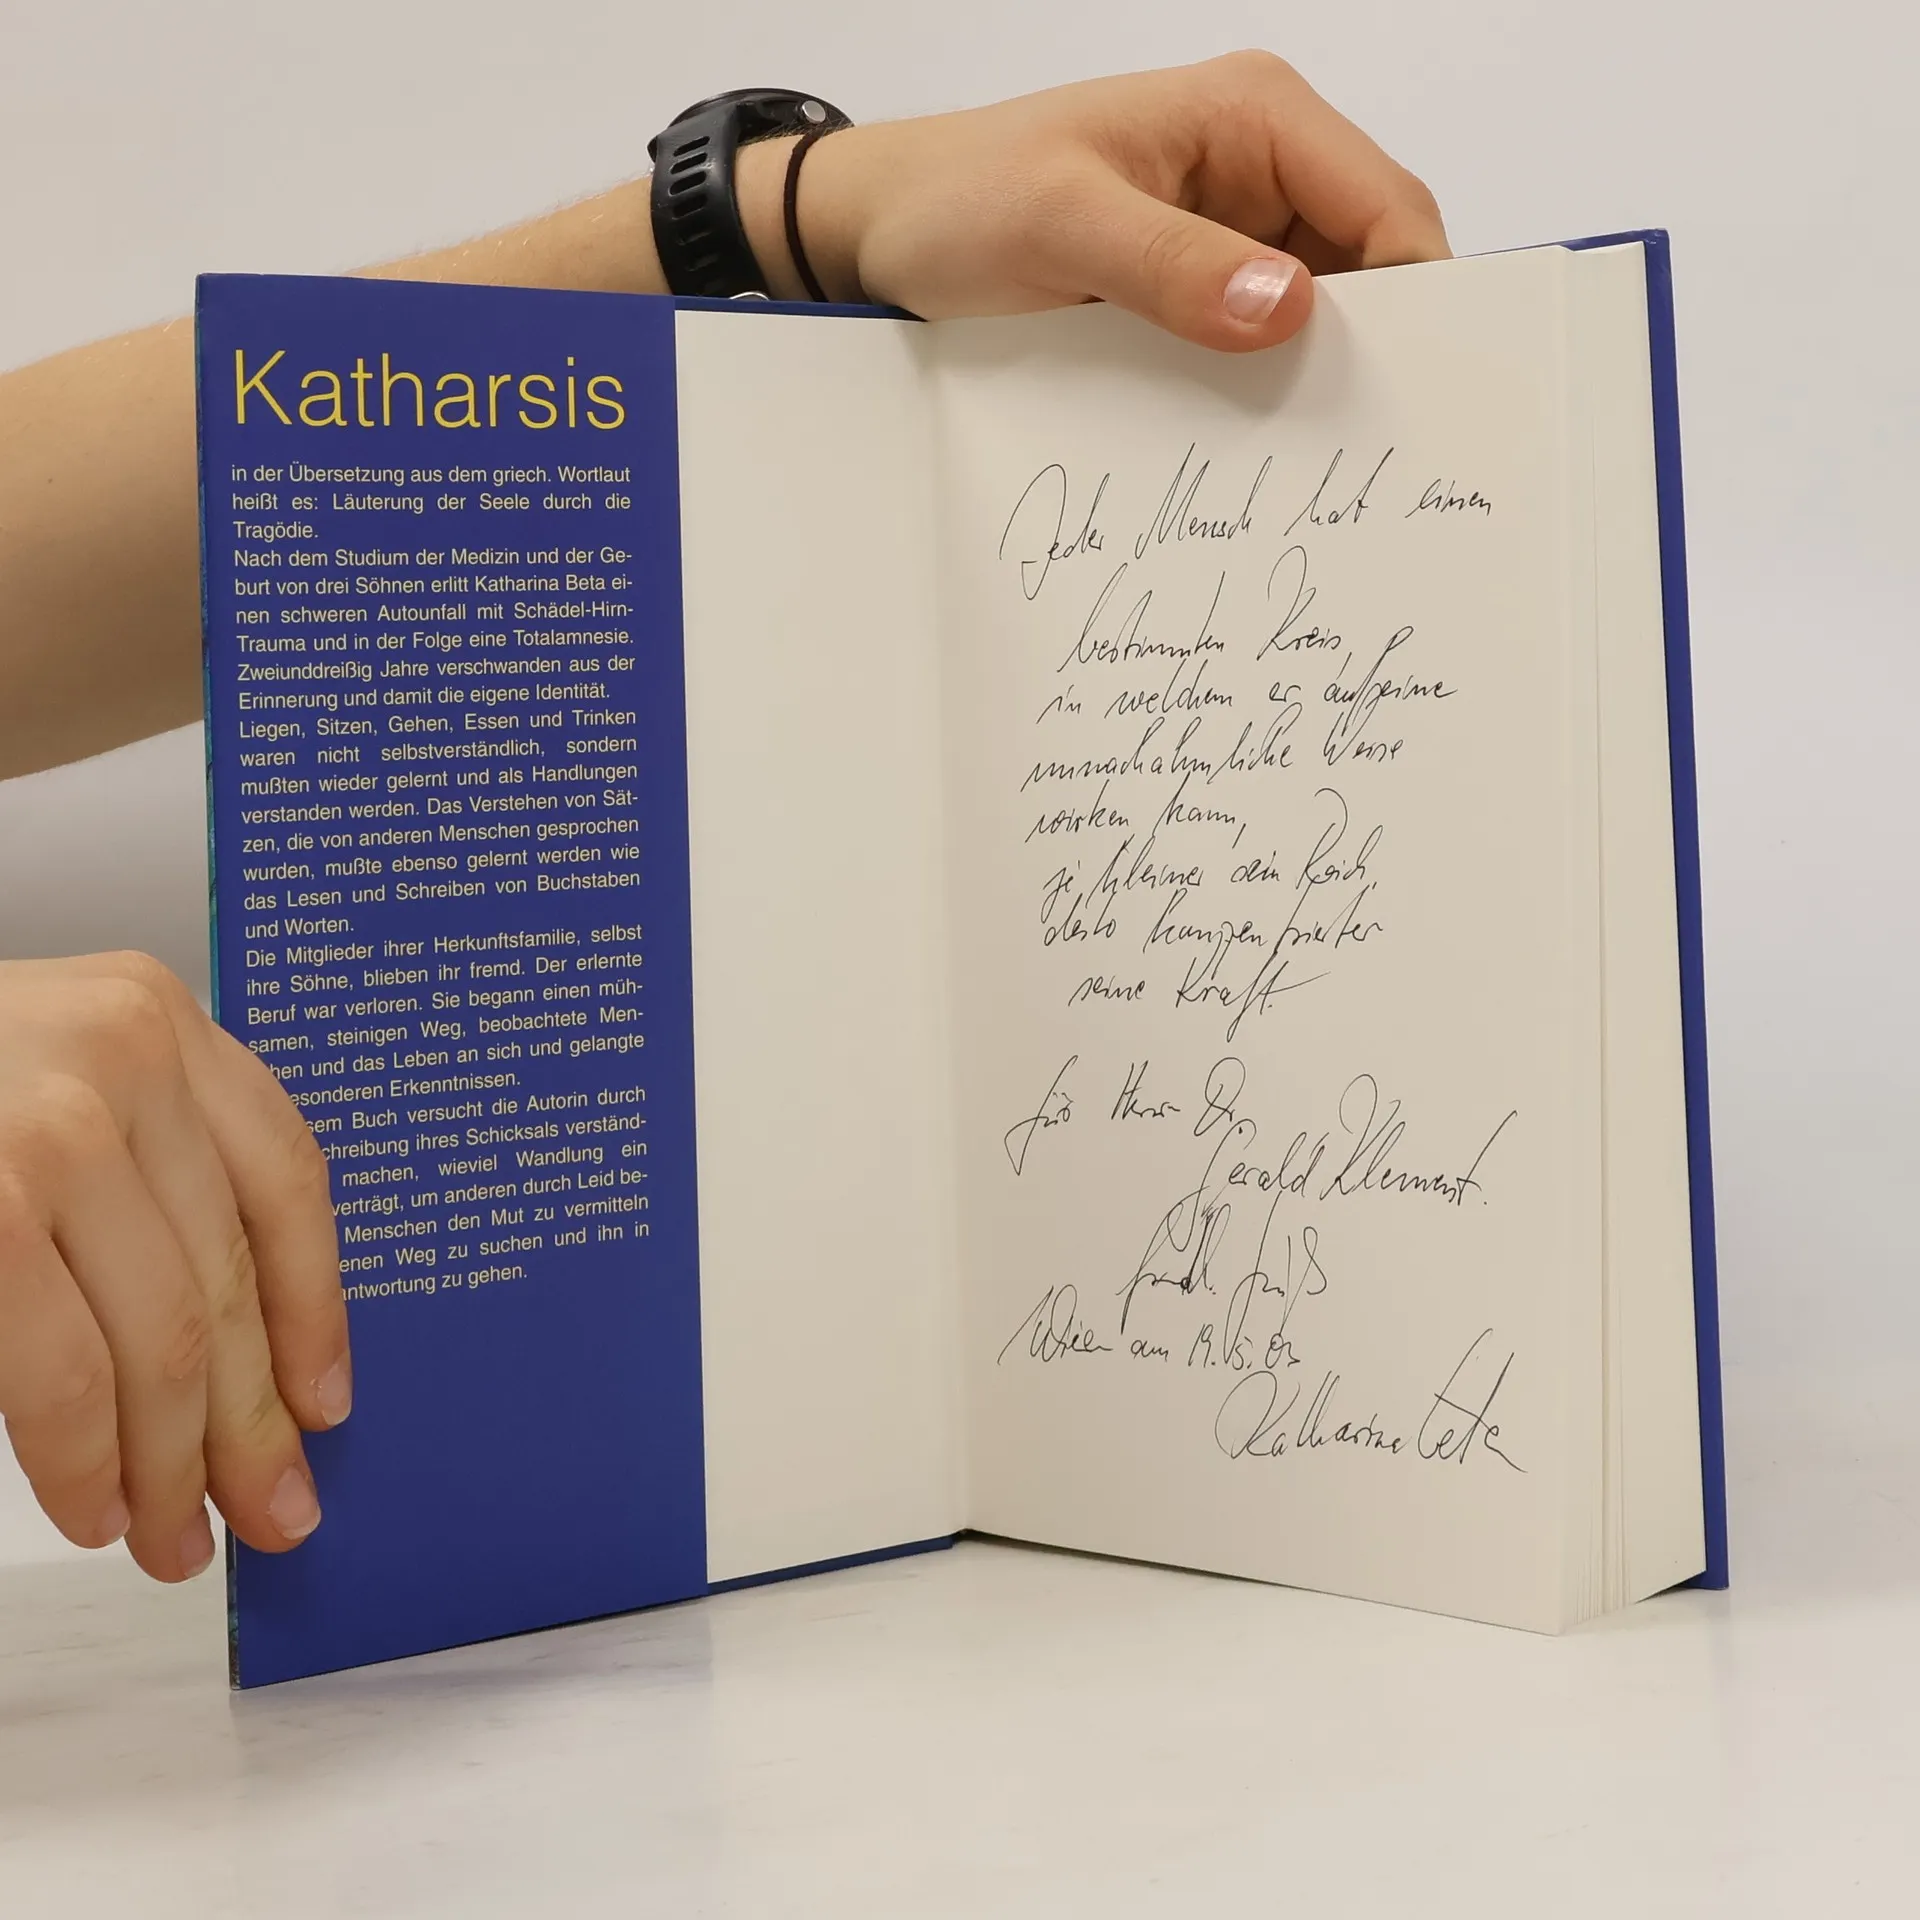 Katharsis
in der Übersetzung aus dem griech. Wortlaut
heißt es: Läuterung der Seele durch die
Tragödie.
Nach dem Studium der Medizin und der Ge-
burt von drei Söhnen erlitt Katharina Beta ei-
nen schweren Autounfall mit Schädel-Hirn-
Trauma und in der Folge eine Totalamnesie.
Zweiunddreißig Jahre verschwanden aus der
Erinnerung und damit die eigene Identität.
Liegen, Sitzen, Gehen, Essen und Trinken
waren nicht selbstverständlich, sondern
mußten wieder gelernt und als Handlungen
verstanden werden. Das Verstehen von Sät-
zen, die von anderen Menschen gesprochen
wurden, mußte ebenso gelernt werden wie
das Lesen und Schreiben von Buchstaben
und Worten.
Die Mitglieder ihrer Herkunftsfamilie, selbst
ihre Söhne, blieben ihr fremd. Der erlernte
Beruf war verloren. Sie begann einen müh-
samen, steinigen Weg, beobachtete Men-
hen und das Leben an sich und gelangte
esonderen Erkenntnissen.
sem Buch versucht die Autorin durch
chreibung ihres Schicksals verständ-
machen, wieviel Wandlung ein
verträgt, um anderen durch Leid be-
Menschen den Mut zu vermitteln
enen Weg zu suchen und ihn in
antwortung zu gehen.
Jeder Mensch hat einen
bestimmten Kreis,
in welchem er auf seine
unnachahmliche Weise
wirken kann,
je kleiner sein Reich,
desto konzentrierter
seine Kraft.
für Herrn Dr.
Gerald Klement.
freundl. Gruß
Wien am 19.5.03
Katharina Beta